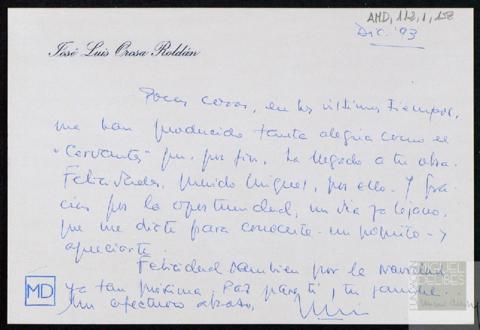 AMD, 112, 1, 158
Dic. '93
José Luis Orosa Roldán
Pocas cosas, en los últimos tiempos,
me han producido tanta alegría como el
"Cervantes" que, por fin, ha llegado a tu obra.
Felicidades, querido Miguel, por ello. Y gra-
cias por la oportunidad, un día ya lejano,
que me diste para conocerte - un poquito - y
apreciarte.
Felicidad también por la Navidad
ya tan próxima. Paz para ti, tu familia.
Un afectuoso abrazo,
MD
FUNDACIÓN
MIGUEL
DELIBES